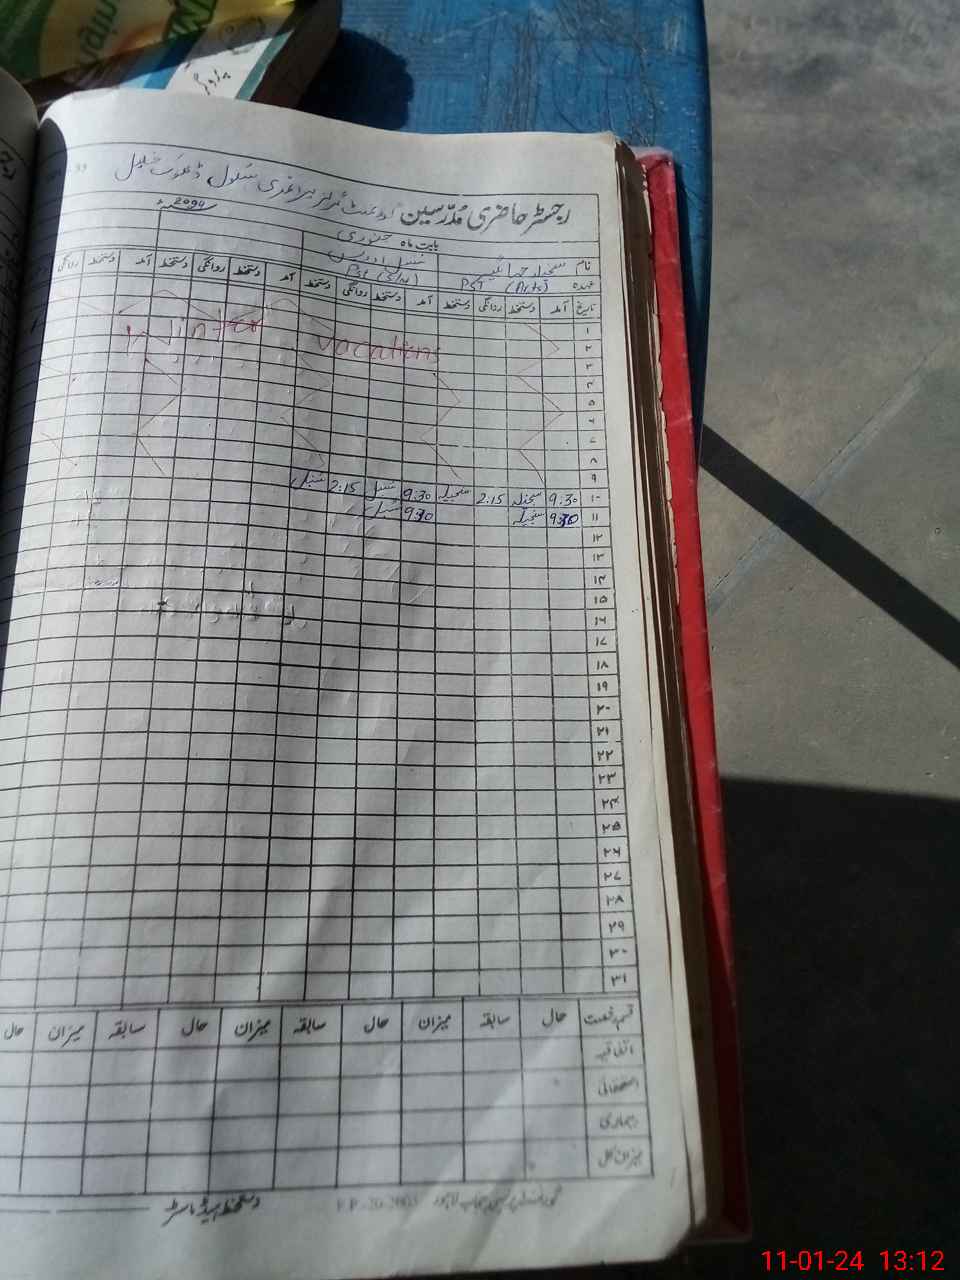 رجسٹر حاضری مُدرّسین گورنمنٹ گرلز پرائمری سکول ڈھوک
بابت ماہ جنوری 2024
نام
عہدہ PST (Arts) PST
تاریخ آمد دستخط روانگی دستخط آمد دستخط روانگی دستخط آمد دستخط روانگی دستخط آمد دستخط روانگی
۱
۲
۳
۴
۵
۶
۷
۸
۹
Winter vacations
۱۰ 9:30 2:15 9:30 2:15
۱۱ 9:30 9:30
۱۲
۱۳
۱۴
۱۵
۱۶
۱۷
۱۸
۱۹
۲۰
۲۱
۲۲
۲۳
۲۴
۲۵
۲۶
۲۷
۲۸
۲۹
۳۰
۳۱
قسم رخصت حال سابقہ میزان حال سابقہ میزان حال سابقہ میزان حال
اتفاقیہ
استحقاقی
بیماری
میزان کل
دستخط ہیڈ ماسٹر
11-01-24 13:12